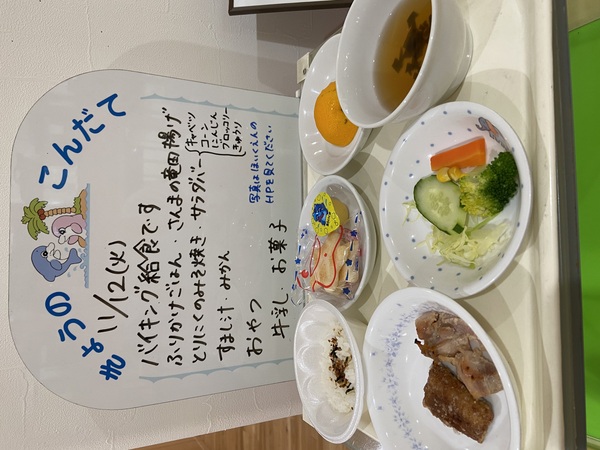 きょうの こんだて
11/12(火)
バイキング給食です
ふりかけごはん・さんまの竜田揚げ
とりにくのみそ焼き・サラダバー
キャベツ
コーン
にんじん
ブロッコリー
きゅうり
すまし汁・みかん
写真はほいくえんの
HPを見てください
おやつ
牛乳・お菓子